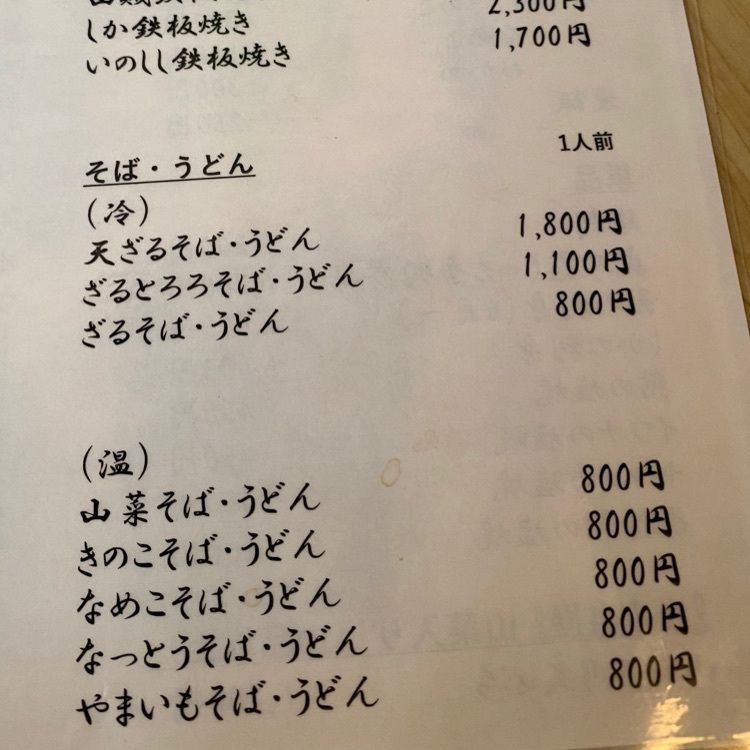 しか鉄板焼き 2,300円
いのしし鉄板焼き 1,700円
そば・うどん 1人前
(冷)
天ざるそば・うどん 1,800円
ざるとろろそば・うどん 1,100円
ざるそば・うどん 800円
(温)
山菜そば・うどん 800円
きのこそば・うどん 800円
なめこそば・うどん 800円
なっとうそば・うどん 800円
やまいもそば・うどん 800円